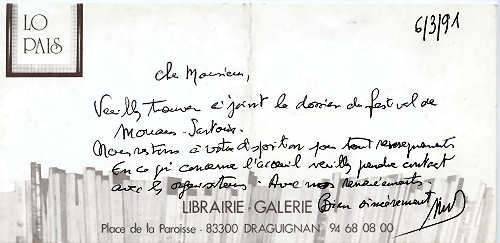 LO
PAIS
6/3/91
Cher Monsieur,
Veuillez trouver ci joint le dossier du festival de
Mouans-Sartoux.
Nous restons à votre disposition pour tout renseignements
En ce qui concerne l'accueil veuillez prendre contact
avec les organisateurs. Avec nos remerciements
Bien sincèrement
LIBRAIRIE - GALERIE
Place de la Paroisse - 83300 DRAGUIGNAN 94 68 08 00